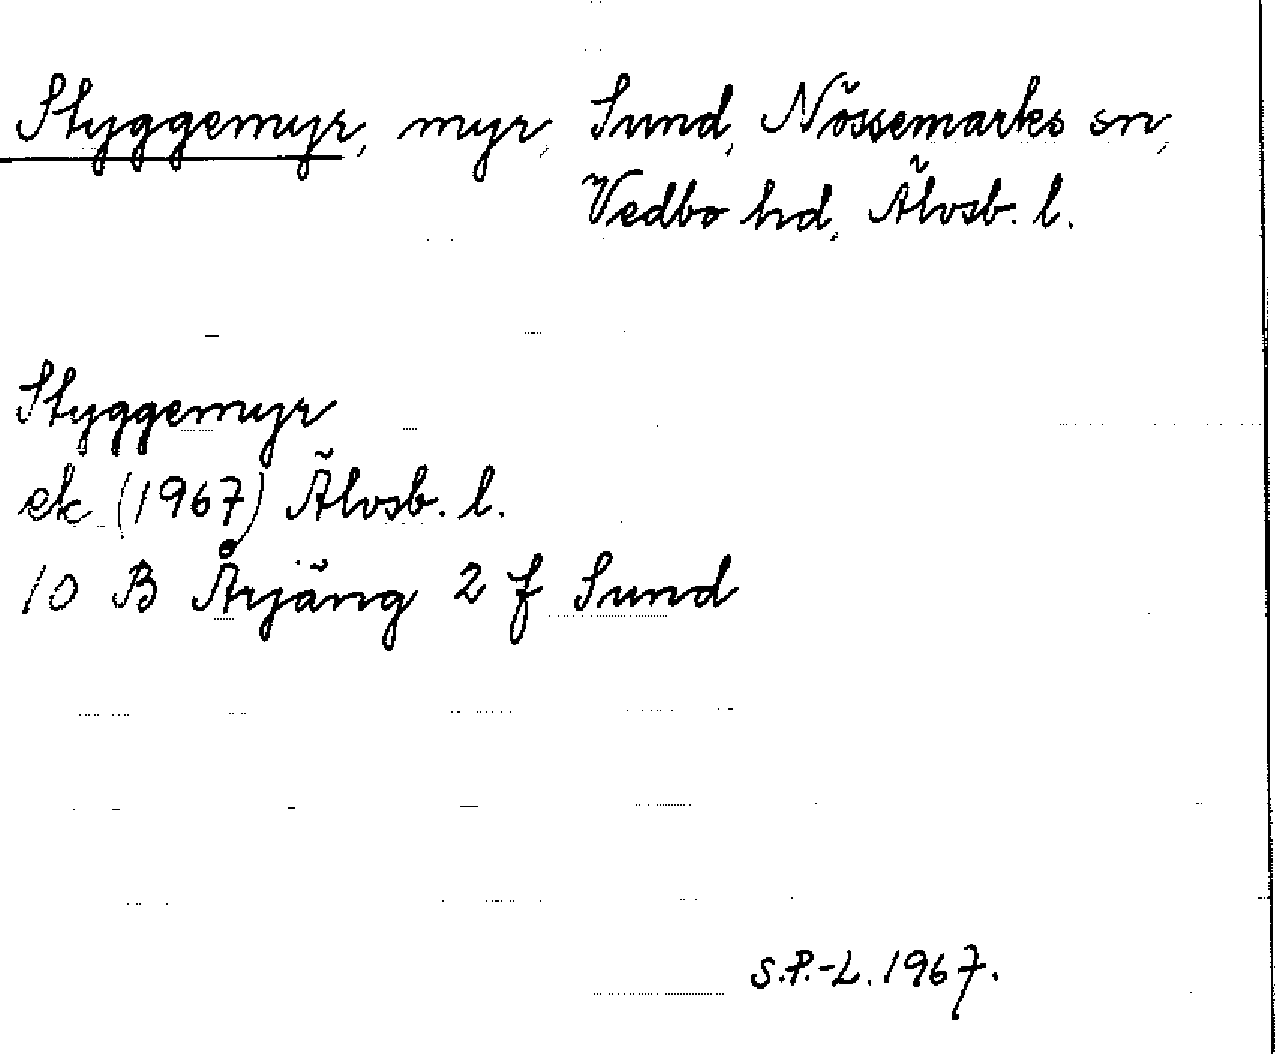 Styggemyr, myr, Sund, Nössemarks sn,
Vedbo hd, Älvsb. l.
Styggemyr
ek (1967) Älvsb. l.
10 B Årjäng 2 f Sund
S.P.-L. 1967.